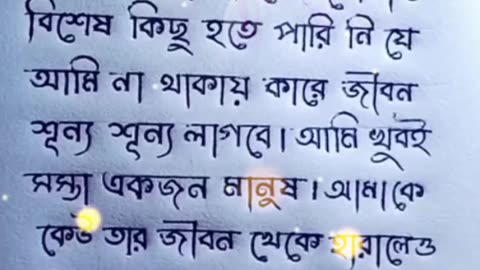 বিশেষ কিছু হতে পারি নি যে
আমি না থাকায় কারে জীবন
শূন্য শূন্য লাগবে। আমি খুবই
সস্তা একজন মানুষ। আমাকে
কেউ তার জীবন থেকে হারালেও